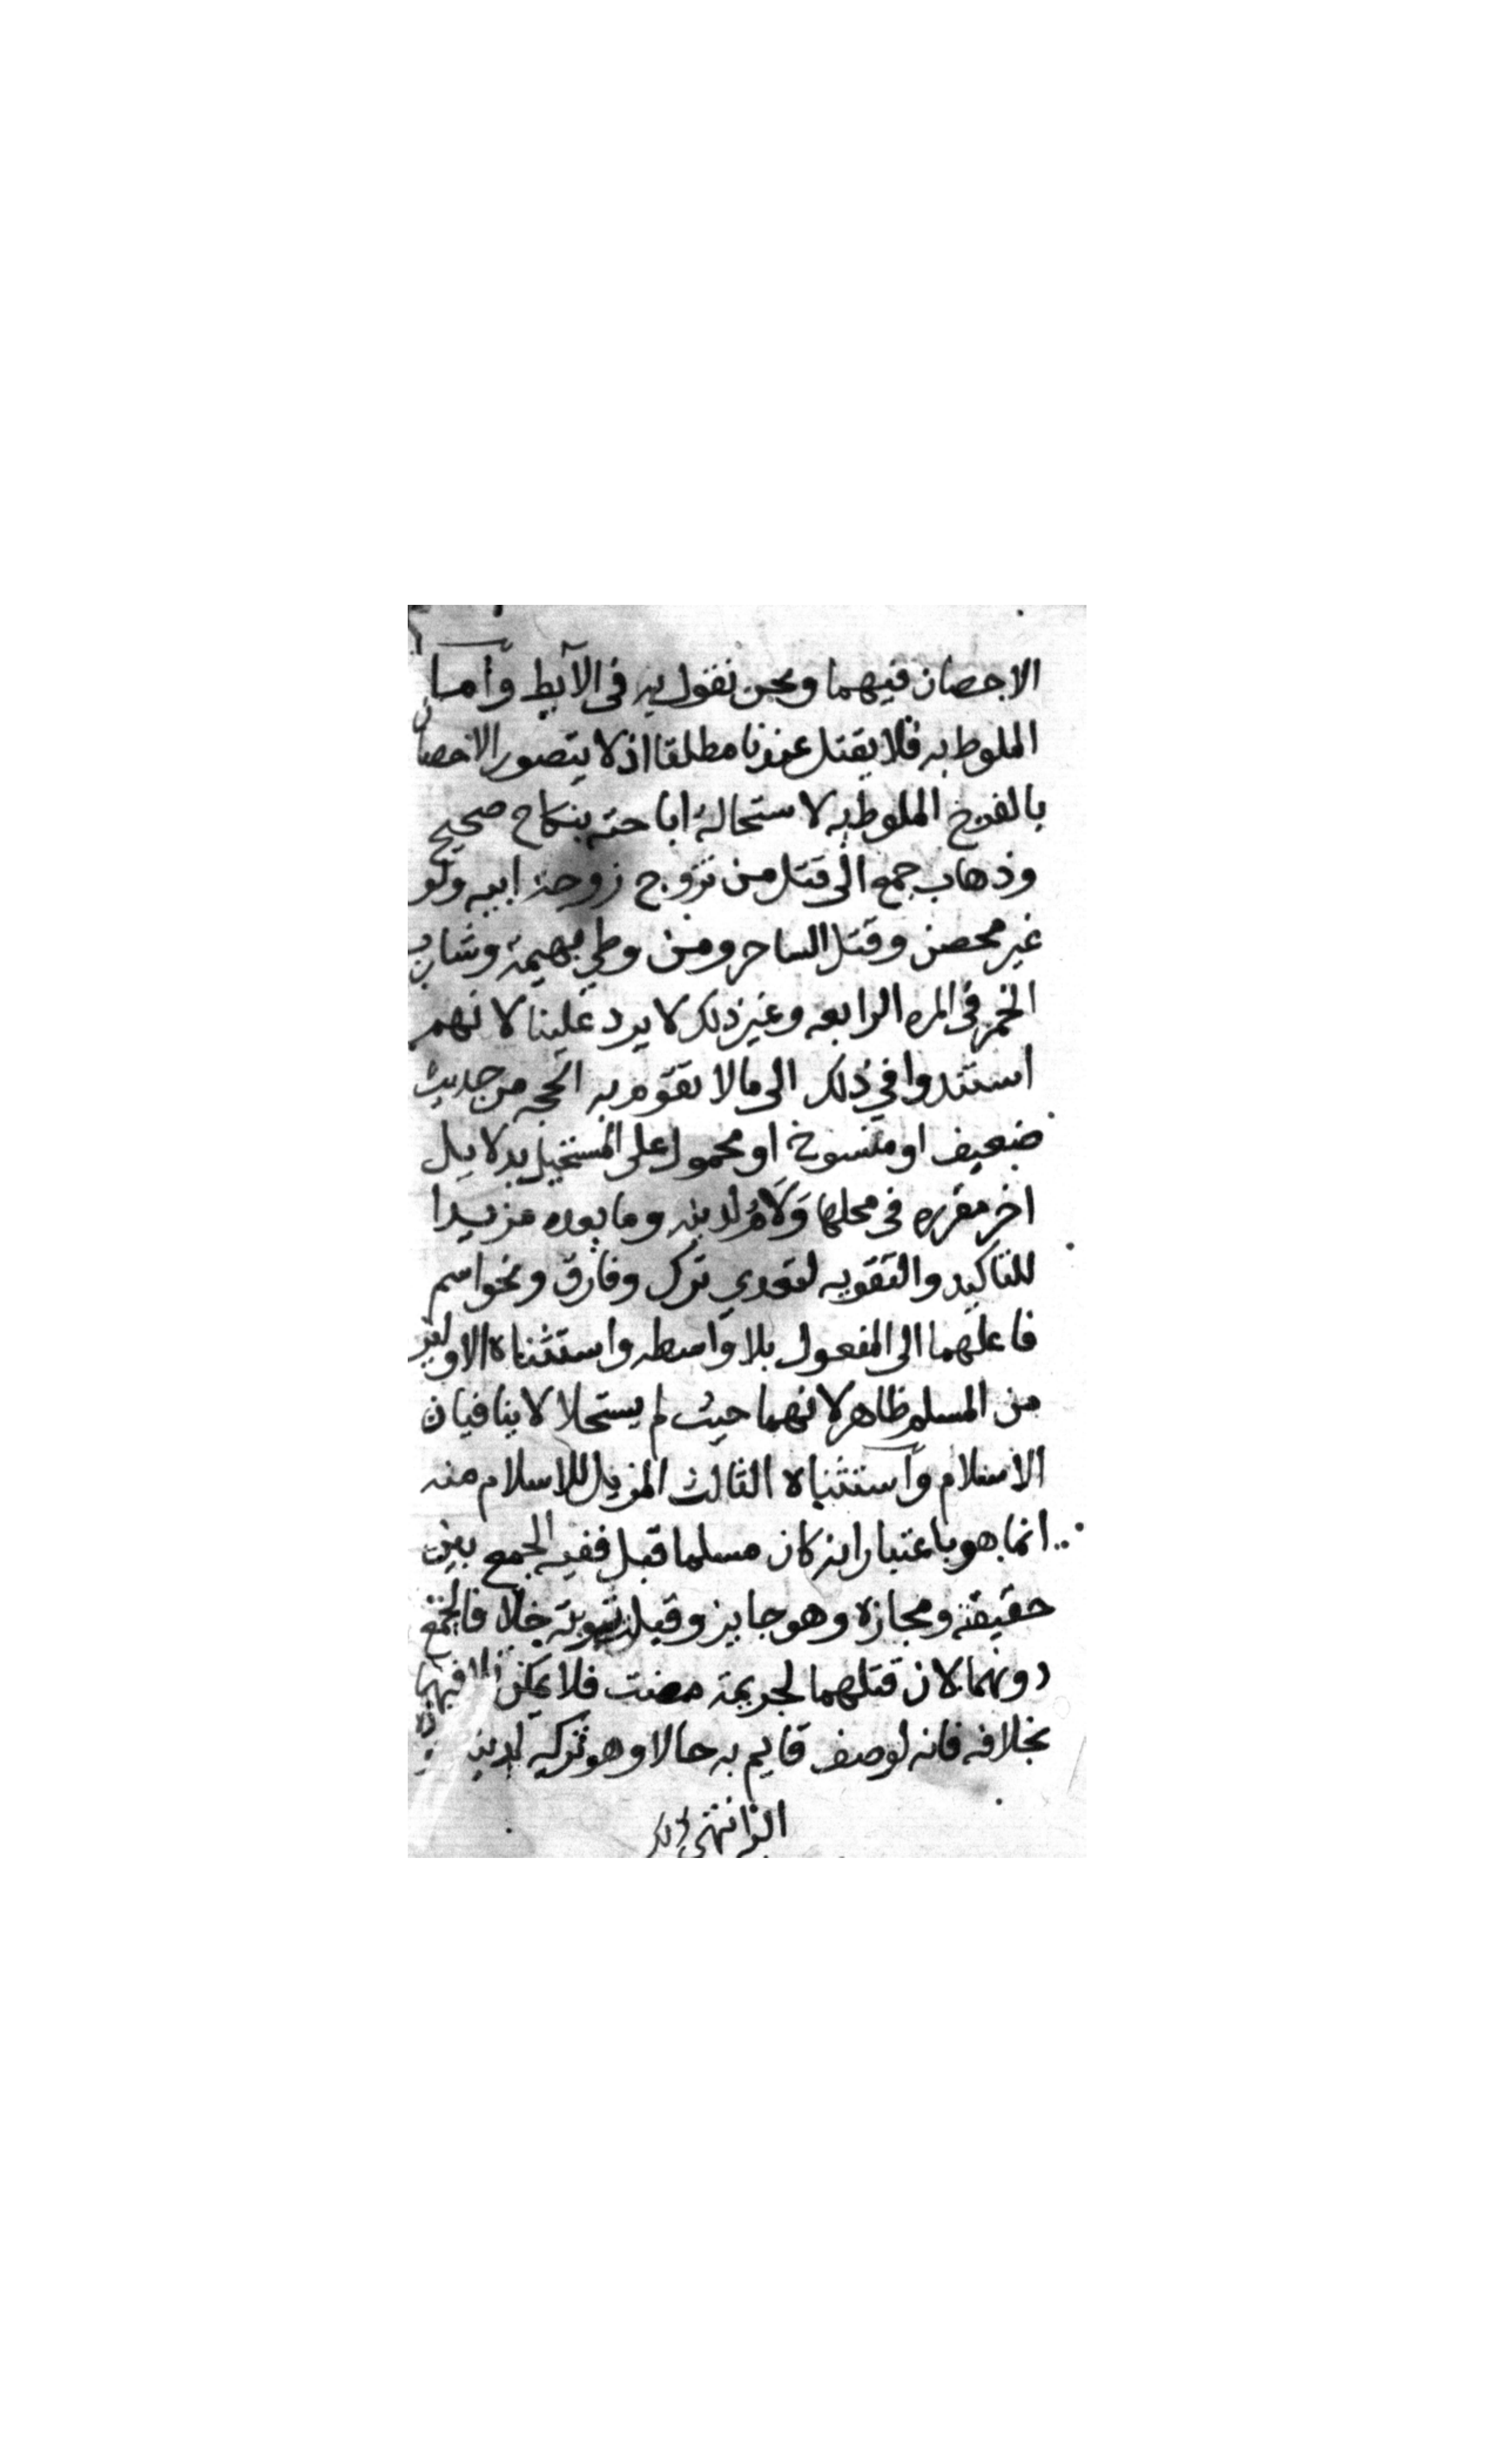 الاحصان فيهما ونحن نقول به في الآيط وأما
الملوط به فلا يقتل عندنا مطلقا اذ لا يتصور الاحصان
بالفرج الملوط به لاستحالة اباحته بنكاح صحيح
وذهاب جمع الى قتل من تزوج زوجة ابيه ولو
غير محصن وقتل الساحر ومن وطي بهيمة وشارب
الخمر في المره الرابعه وغير ذلك لا يرد علينا لانهم
استندوا في ذلك الى مالا تقوم به الحجه من حديث
ضعيف او منسوخ او محمول على المستحيل بدلايل
اخر مقرره في محلها ولام لدينه وما بعده مزيدا
للتاكيد والتقويه لتعدي ترك وفارق ونحو اسم
فاعلهما الى المفعول بلا واسطه واستثناء الاولين
من المسلم ظاهر لانهما حيث لم يستحلا لا ينافيان
الاسلام وآستثناء الثالث المزيل للاسلام منه
انما هو باعتبار انه كان مسلما قبل ففيه الجمع بين
حقيقته ومجازه وهو جايز وقبلت توبته خلافا لجمع
دونهما لان قتلهما لجريمة مضت فلا يمكن تلافيها
بخلافه فانه لوصف قايم به حالا وهو تركه لدينه
انتهى